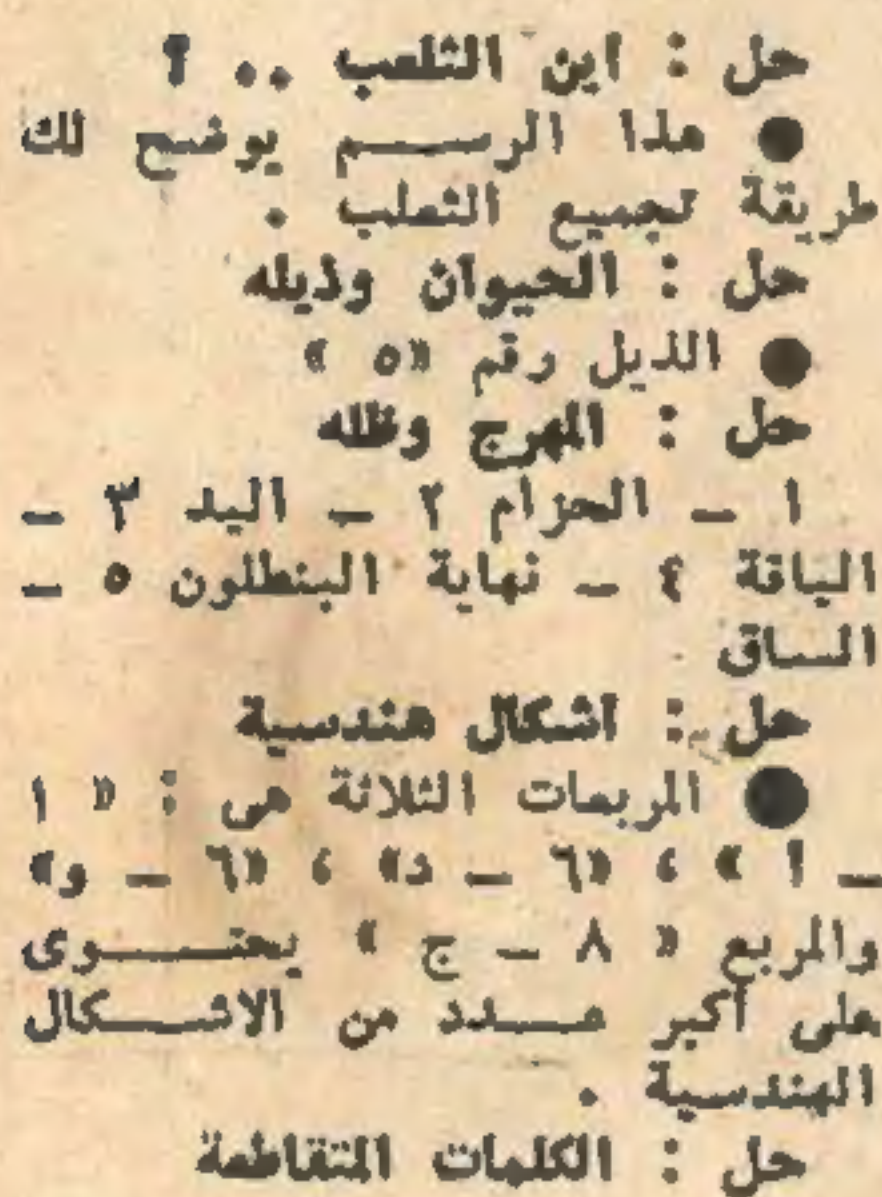 حل : اين الثلعب .. ؟
● هذا الرسم يوضح لك
طريقة تجميع الثعلب .
حل : الحيوان وذيله
● الذيل رقم «٥ »
حل : المهرج وظله
١ ـ الحزام ٢ ـ اليد ٣ ـ
الياقة ٤ ـ نهاية البنطلون ٥ ـ
الساق
حل : اشكال هندسية
● المربعات الثلاثة هى : « ١
ـ أ » ، «٦ ـ د» ، «٦ ـ و»
والمربع « ٨ ـ ج » يحتوى
على أكبر عدد من الاشكال
الهندسية .
حل : الكلمات المتقاطعة